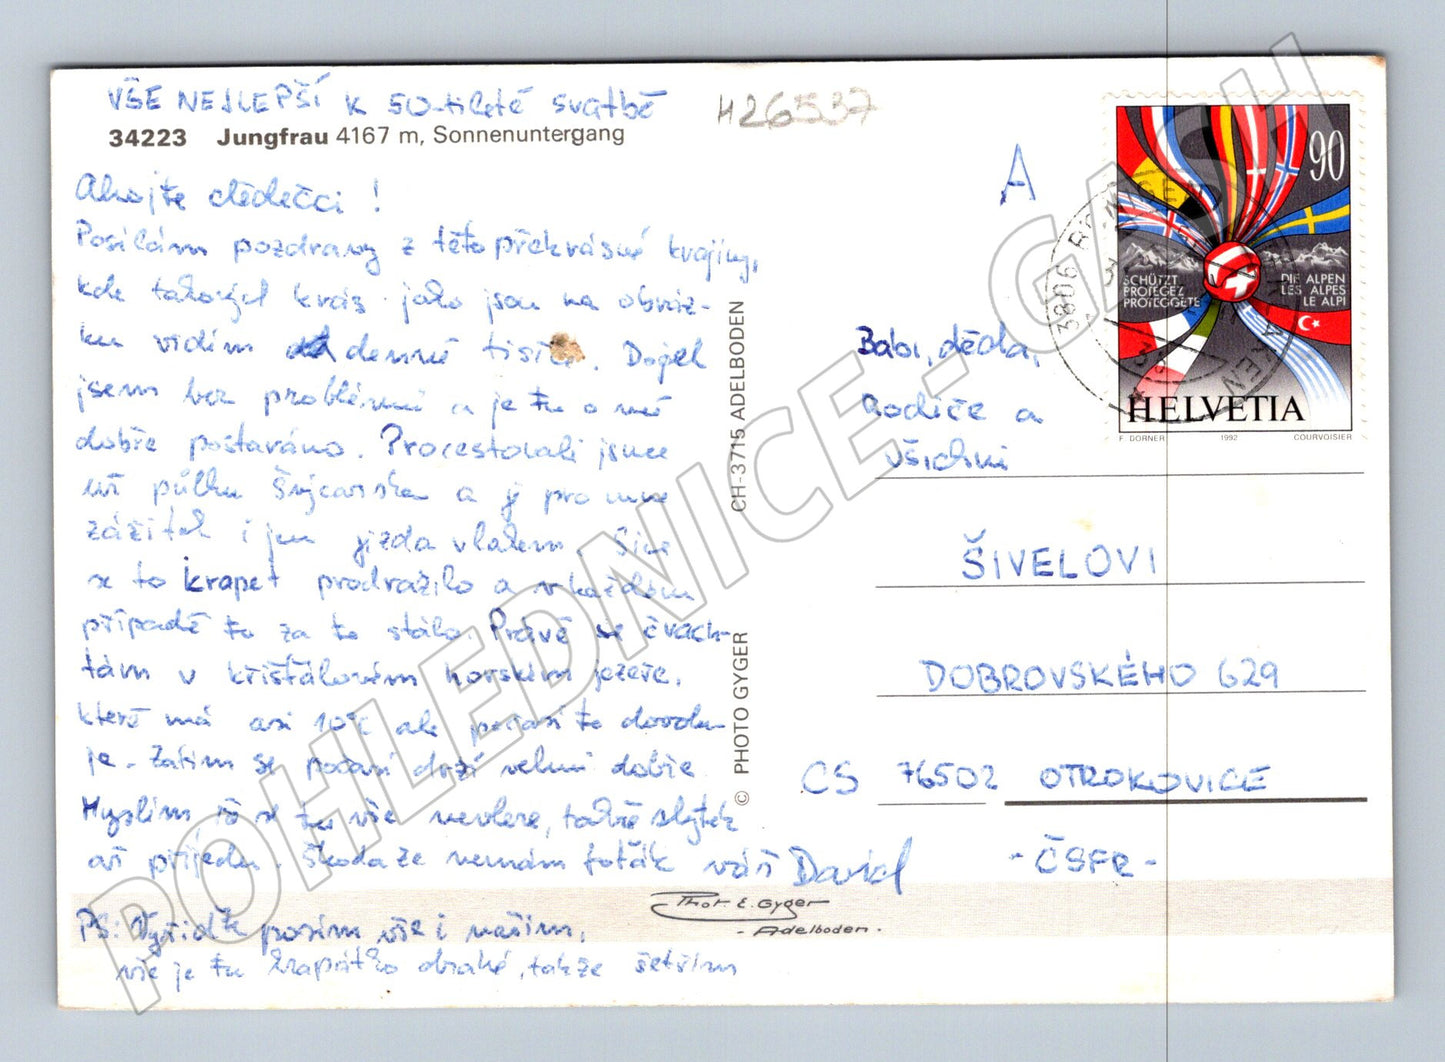 VŠE NEJLEPŠÍ K 50-tileté svatbě
34223 Jungfrau 4167 m, Sonnenuntergang
H26537
Ahojte dědečci!
Posílám pozdravy z této překrásné krajiny,
kde takových krás jako jsou na obráz-
ku vidím denně tisíc. Dojel
jsem bez problémů a je tu o mě
dobře postaráno. Procestovali jsme
už půlku Švýcarska a pro mne
zážitek i jen jízda vlakem. Sice
se to krapet prodražilo a v každém
případě tu za to stálo. Právě se čvach-
tám v křišťálovém horském jezeře,
které má asi 10°C ale počasí to dovolu-
je. Zatím se počasí drží velmi dobře
Myslím, že se tu vše nevleze, takže zbytek
až přijedu. Škoda že nemám foťák váš David
PS: Vyřiďte prosím vše i našim,
vše je tu krapátko drahé, takže šetřím
© PHOTO GYGER CH-3715 ADELBODEN
Phot. E. Gyger
- Adelboden.
A
90
SCHÜTZT
PROTEGEZ
PROTEGGETE
DIE ALPEN
LES ALPES
LE ALPI
HELVETIA
F. DORNER 1992 COURVOISIER
3806 BÖNIGEN
Babi, děda,
Rodiče a
všichni
ŠIVELOVI
DOBROVSKÉHO 629
CS 76502 OTROKOVICE
- ČSFR -
POHLEDNICE - GASH